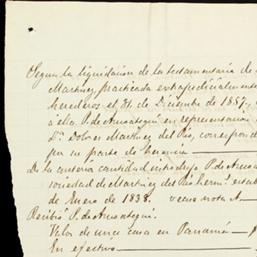 Segun la liquidacion de la testamentaria de
Martinez, practicada extrajudicialmente
herederos el 31 de Diciembre de 1857,
á ella P. de Amoategui en representacion
Dª Dolores Martinez del Rio, correspond
por su parte de herencia
De la anterior cantidad introdujo P. de Amoa
sociedad de Martinez del Rio herm.s estab
de Enero de 1838. vease nota A.
Recibió P. de Amoategui.
Valor de una casa en Panamá
En efectivo